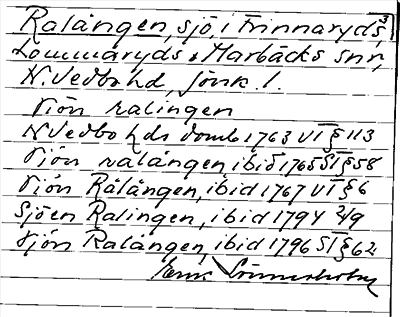 Ralången, sjö, i Frinnaryds,
Lommaryds o Marbäcks snr,
N. Vedbo hd, Jönk. l.
Siön ralingen
N Vedbo hds domb 1763 VT § 113
Siön ralången, ibid 1765 ST § 58
Siön Rålången, ibid 1767 VT § 6
Sjöen Ralingen, ibid 1794 2/9
Siön Ralången, ibid 1796 ST § 62